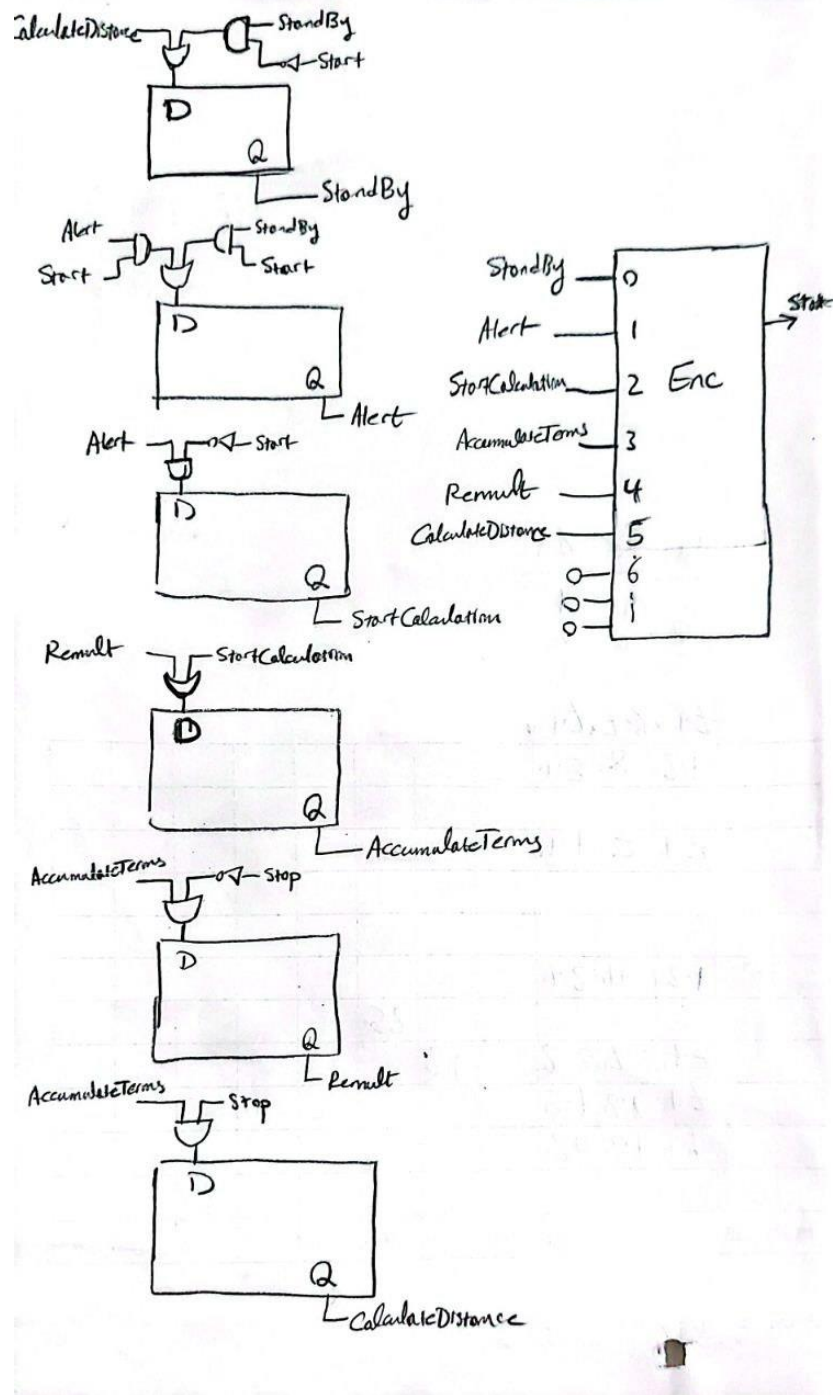 CalculateDistance
StandBy
Start
D
Q
StandBy
Alert
Start
StandBy
Start
D
Q
Alert
Alert
Start
D
Q
StartCalculation
Remult
StartCalculation
D
Q
AccumulateTerms
AccumulateTerms
Stop
D
Q
Remult
AccumulateTerms
Stop
D
Q
CalculateDistance
StandBy
0
Alert
1
StartCalculation
2
Enc
AccumulateTerms
3
Remult
4
CalculateDistance
5
0
6
0
0